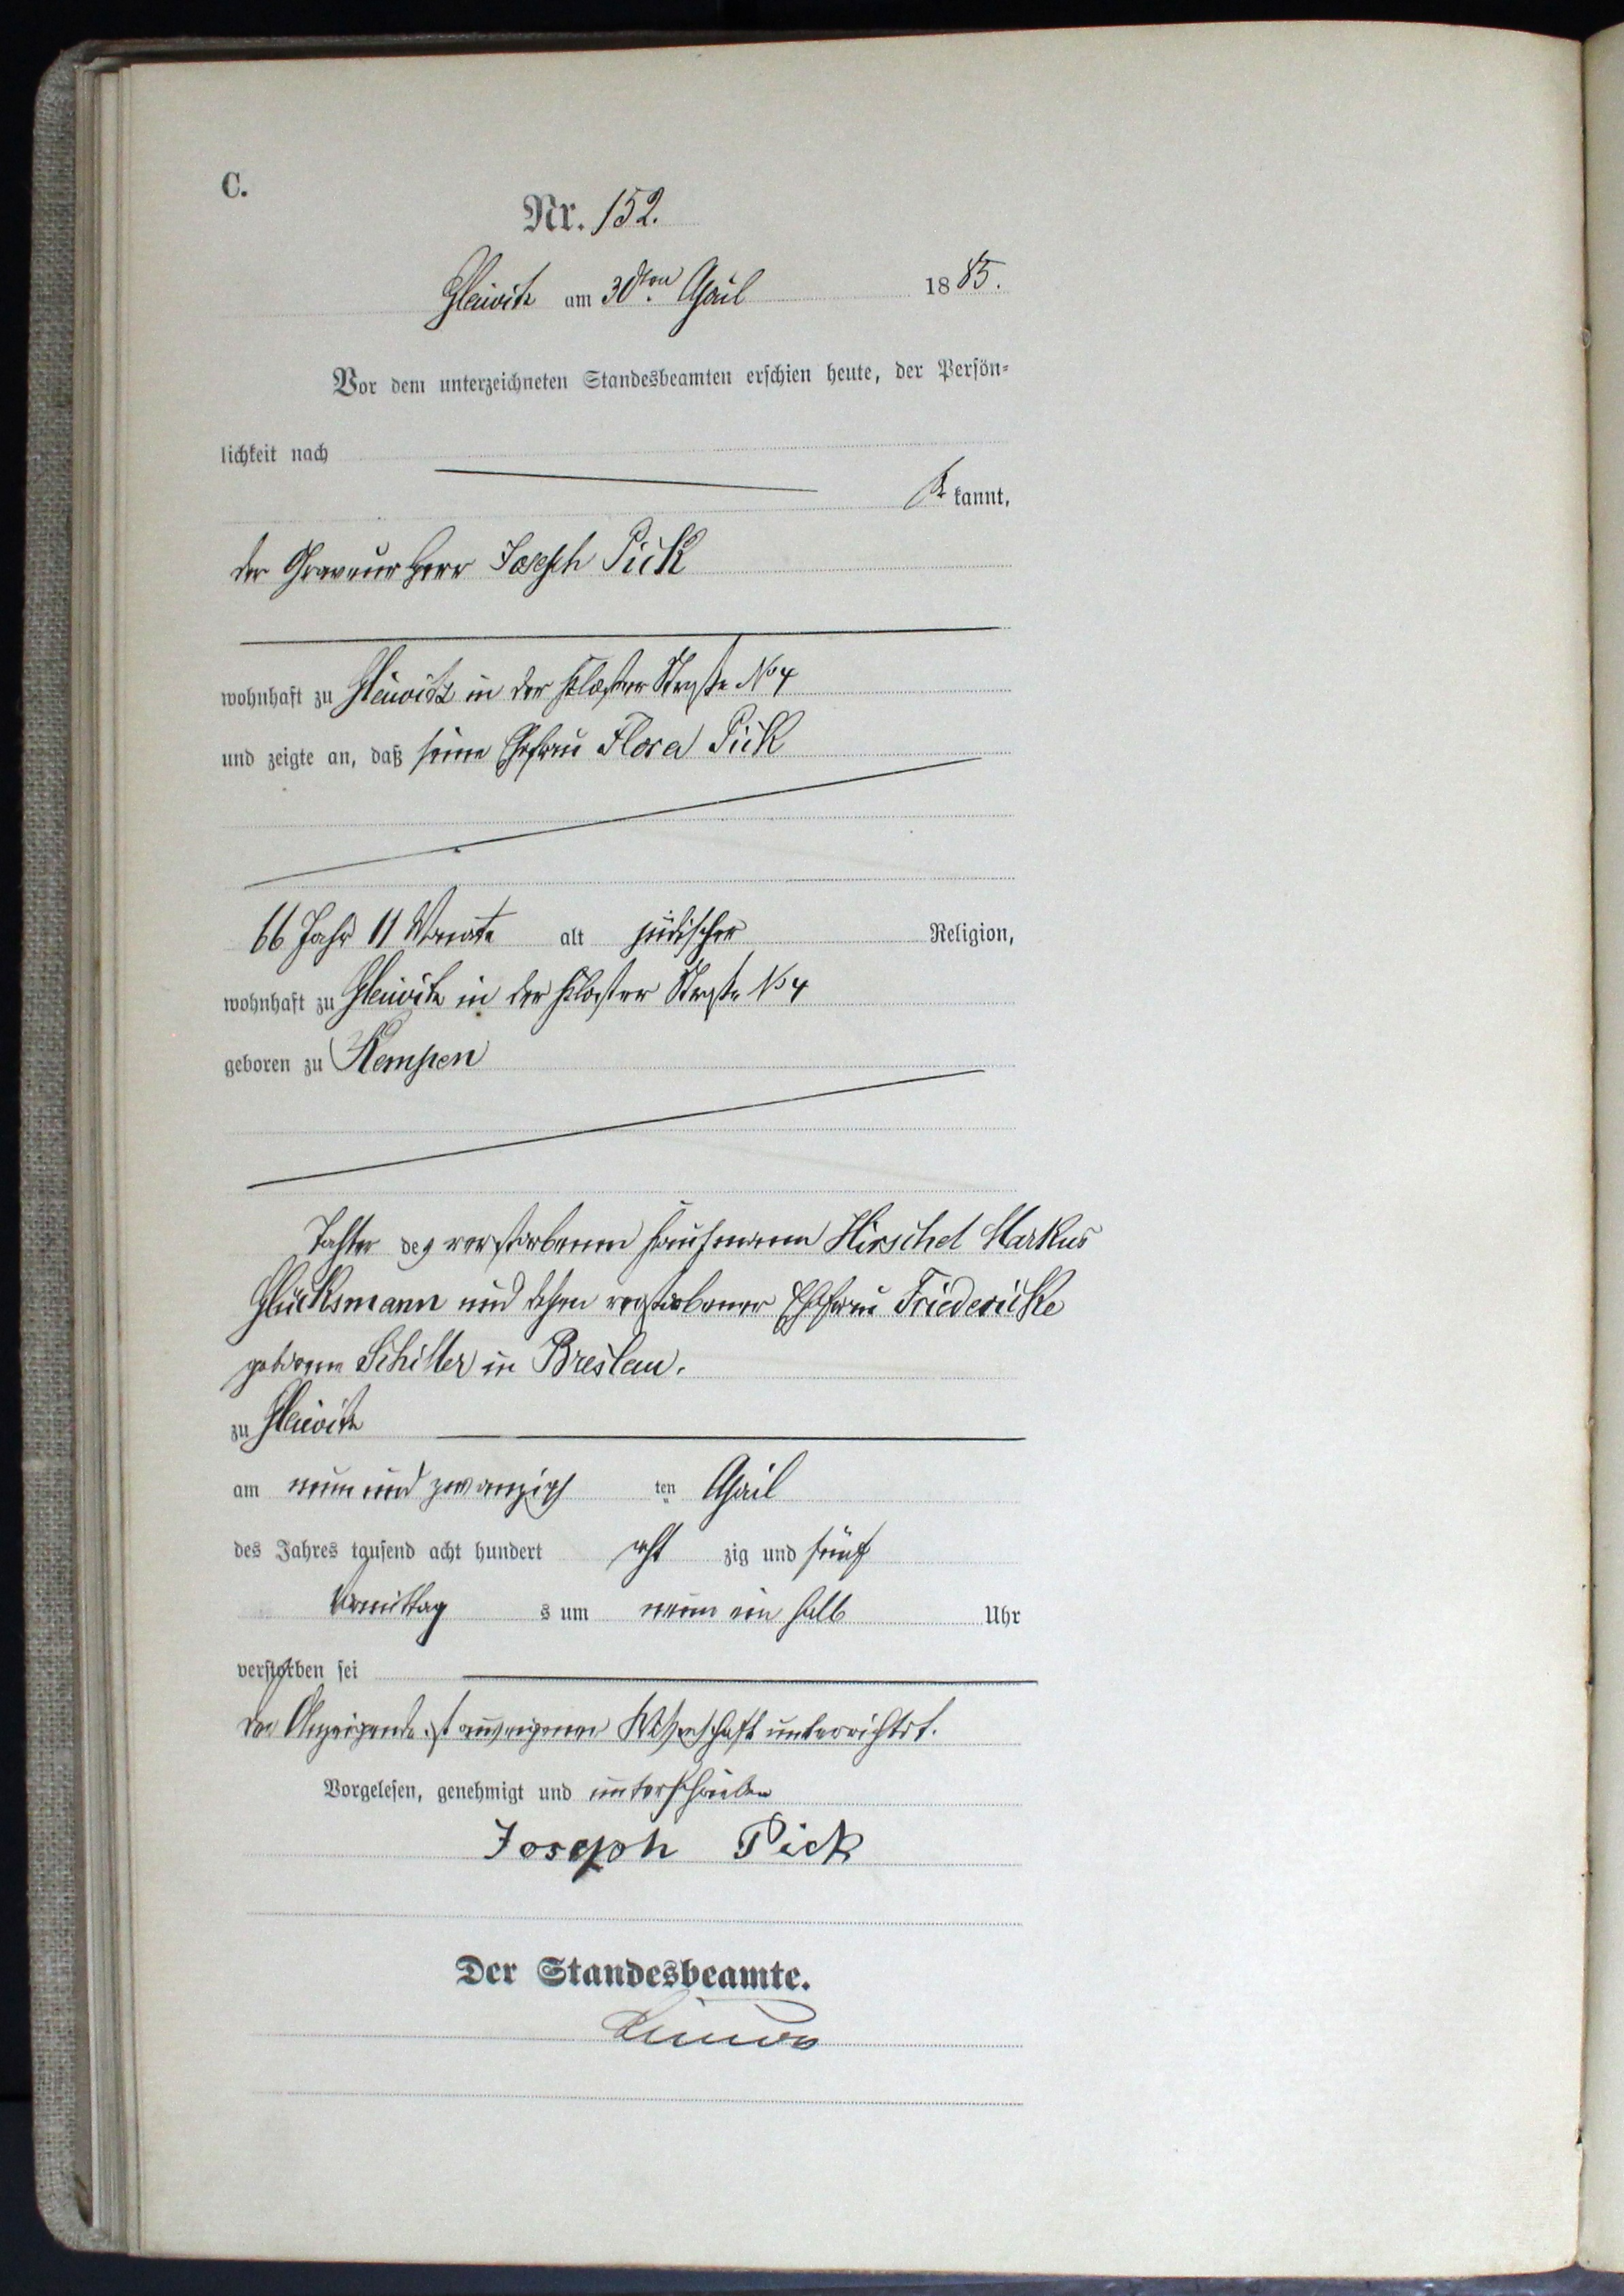 C.
Nr. 152.
Gleiwitz am 30ten April 1885.
Vor dem unterzeichneten Standesbeamten erschien heute, der Persön-
lichkeit nach
be kannt,
der Graveur Herr Joseph Pick
wohnhaft zu Gleiwitz in der Kloster Straße No 4
und zeigte an, daß seine Ehefrau Flora Pick
66 Jahr 11 Monate alt jüdischer Religion,
wohnhaft zu Gleiwitz in der Kloster Straße No 4
geboren zu Kempen
Tochter des verstorbenen Kaufmann Hirschel Markus
Glücksmann und dessen verstorbener Ehefrau Friedericke
geborene Schiller in Breslau.
zu Gleiwitz
am neun und zwanzigs ten April
des Jahres tausend acht hundert acht zig und fünf
Vormittag s um neun ein halb Uhr
verstorben sei
der Anzeigende ist aus eigener Wissenschaft unterrichtet.
Vorgelesen, genehmigt und unterschrieben
Joseph Pick
Der Standesbeamte.